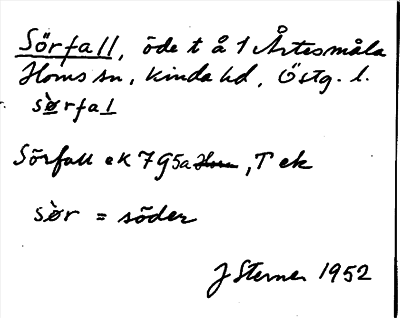 Sörfall, öde t å 1 Årtesmåla
Horns sn, Kinda hd, Östg. l.
sø̀rfal
Sörfall ek 7 g5a Horn, T ek
sø̀r = söder
J Sterner 1952